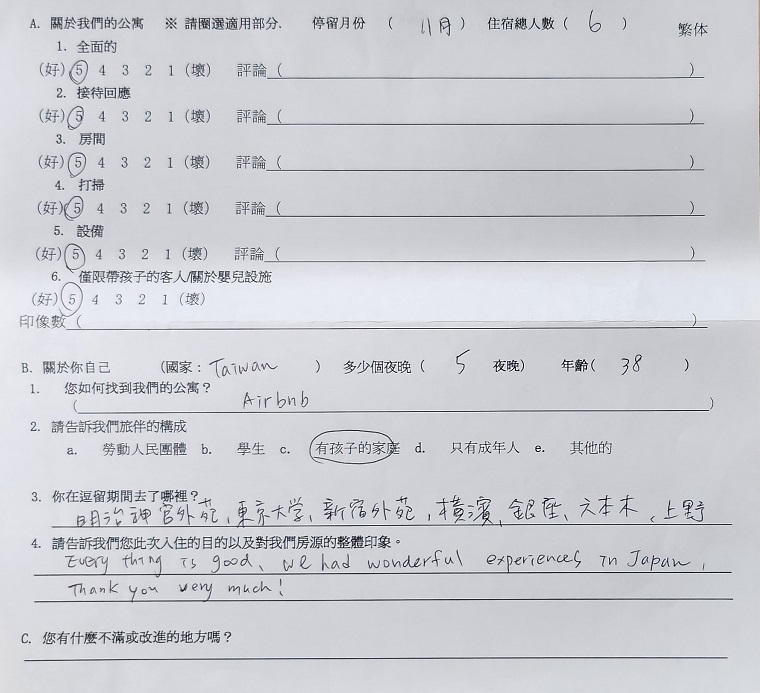 A. 關於我們的公寓 ※ 請圈選適用部分. 停留月份 ( 11月 ) 住宿總人數 ( 6 ) 繁体
1. 全面的
(好) 5 4 3 2 1 (壞) 評論 ( )
2. 接待回應
(好) 5 4 3 2 1 (壞) 評論 ( )
3. 房間
(好) 5 4 3 2 1 (壞) 評論 ( )
4. 打掃
(好) 5 4 3 2 1 (壞) 評論 ( )
5. 設備
(好) 5 4 3 2 1 (壞) 評論 ( )
6. 僅限帶孩子的客人/關於嬰兒設施
(好) 5 4 3 2 1 (壞)
印像數 ( )
B. 關於你自己 (國家: Taiwan ) 多少個夜晚 ( 5 夜晚) 年齡( 38 )
1. 您如何找到我們的公寓？
( Airbnb )
2. 請告訴我們旅伴的構成
a. 勞動人民團體 b. 學生 c. 有孩子的家庭 d. 只有成年人 e. 其他的
3. 你在逗留期間去了哪裡？
明治神宮外苑、東京大学、新宿外苑、橫濱、銀座、六本木、上野
4. 請告訴我們您此次入住的目的以及對我們房源的整體印象。
Every thing is good, we had wonderful experiences in Japan,
Thank you very much!
C. 您有什麼不滿或改進的地方嗎？